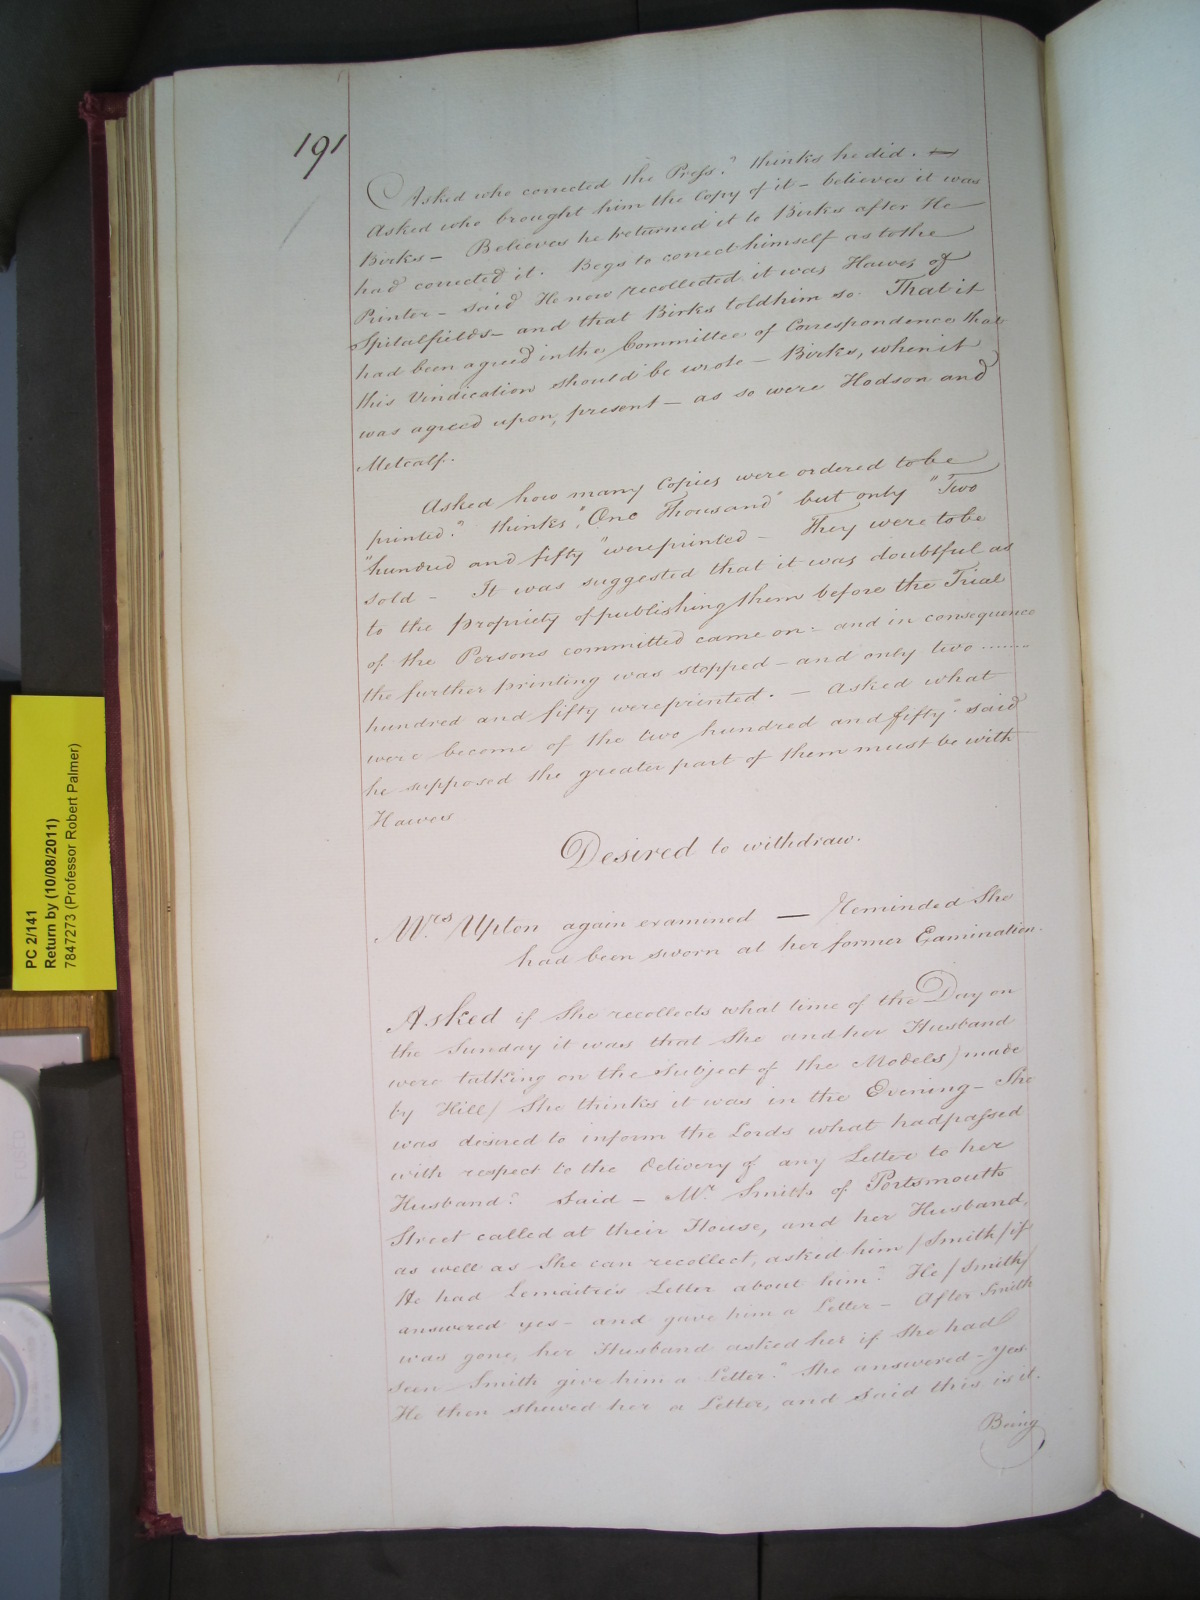 191
Asked who corrected the Press? thinks he did. —
Asked who brought him the Copy of it – believes it was
Birks – Believes he returned it to Birks after He
had corrected it. Begs to correct himself as to the
Printer – said He now recollected it was Hawes of
Spitalfields – and that Birks told him so. That it
had been agreed in the Committee of Correspondence that
this Vindication should be wrote – Birks, when it
was agreed upon, present – as so were Hodson and
Metcalf.
Asked how many Copies were ordered to be
printed? thinks, "One Thousand" but only "Two
"hundred and fifty" were printed – They were to be
sold – It was suggested that it was doubtful as
to the propriety of publishing them before the Trial
of the Persons committed came on: and in consequence
the further printing was stopped – and only two .......
hundred and fifty were printed. – Asked what
were become of the two hundred and fifty? said
he supposed the greater part of them must be with
Hawes
Desired to withdraw.
Mrs Upton again examined — Reminded She
had been sworn at her former Examination.
Asked if She recollects what time of the Day on
the Sunday it was that She and her Husband
were talking on the Subject of the Models / made
by Hill / She thinks it was in the Evening – She
was desired to inform the Lords what had passed
with respect to the delivery of any Letter to her
Husband? Said – Mr. Smith of Portsmouth
Street called at their House, and her Husband,
as well as She can recollect, asked him / Smith / if
He had Lemaitre's Letter about him? He / Smith /
answered yes – and gave him a Letter – After Smith
was gone, her Husband asked her if She had
seen Smith give him a Letter? She answered – Yes.
He then shewed her a Letter, and said this is it.
Being
PC 2/141
Return by (10/08/2011)
7847273 (Professor Robert Palmer)